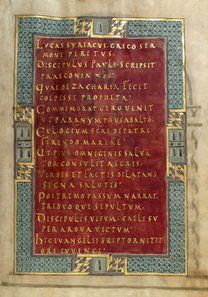 LUCAS SYRIACUS GRECO SER
MONE PERITUS
DISCIPULUS PAULI SCRIPSIT
PRAECONIA
QUALE ZACHARIA FECIT
PROPHETA
COMMEMORAT
UT PARANYMPHUS AB ALTO
EULOGIUM
FERENDO MARIAE
UT PIUS OMNIGENIS SALVA
TOR CONSULIT AEGRIS
VERBIS ET FACTIS DILATANS
SIGNA SALUTIS
POSTREMO PASSUM NARRAT
TRIDUOQUE SEPULTUM
DISCIPULIS UISUM CAELI SU
PER ARUA VECTUM
HIC EUVANGELII SCRIPTOR NITIT
ORE IUVENCI